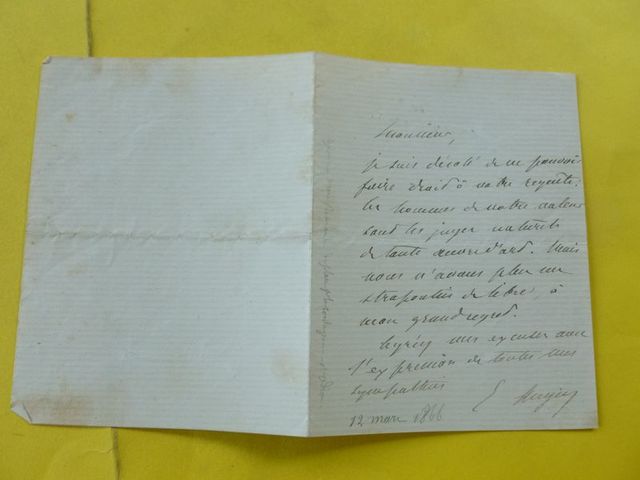 Monsieur,
je suis désolé de ne pouvoir
faire droit à votre requête.
les hommes de votre valeur
sont les juges naturels
de toute œuvre d'art. Mais
nous n'avons plus un
strapontin de libre, à
mon grand regret.
Agréez mes excuses avec
l'expression de toutes mes
sympathies
E Augier
12 mars 1866